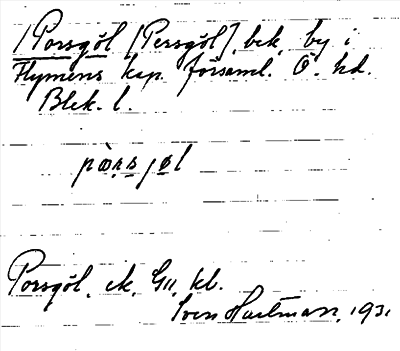 1 Porsgöl [Persgöl], bek. by i
Flymens kap. församl. Ö. hd.
Blek. l.
pò̤ṛs jøl
Porsgöl, ek. G11, kl.
Sven Hartman, 1931